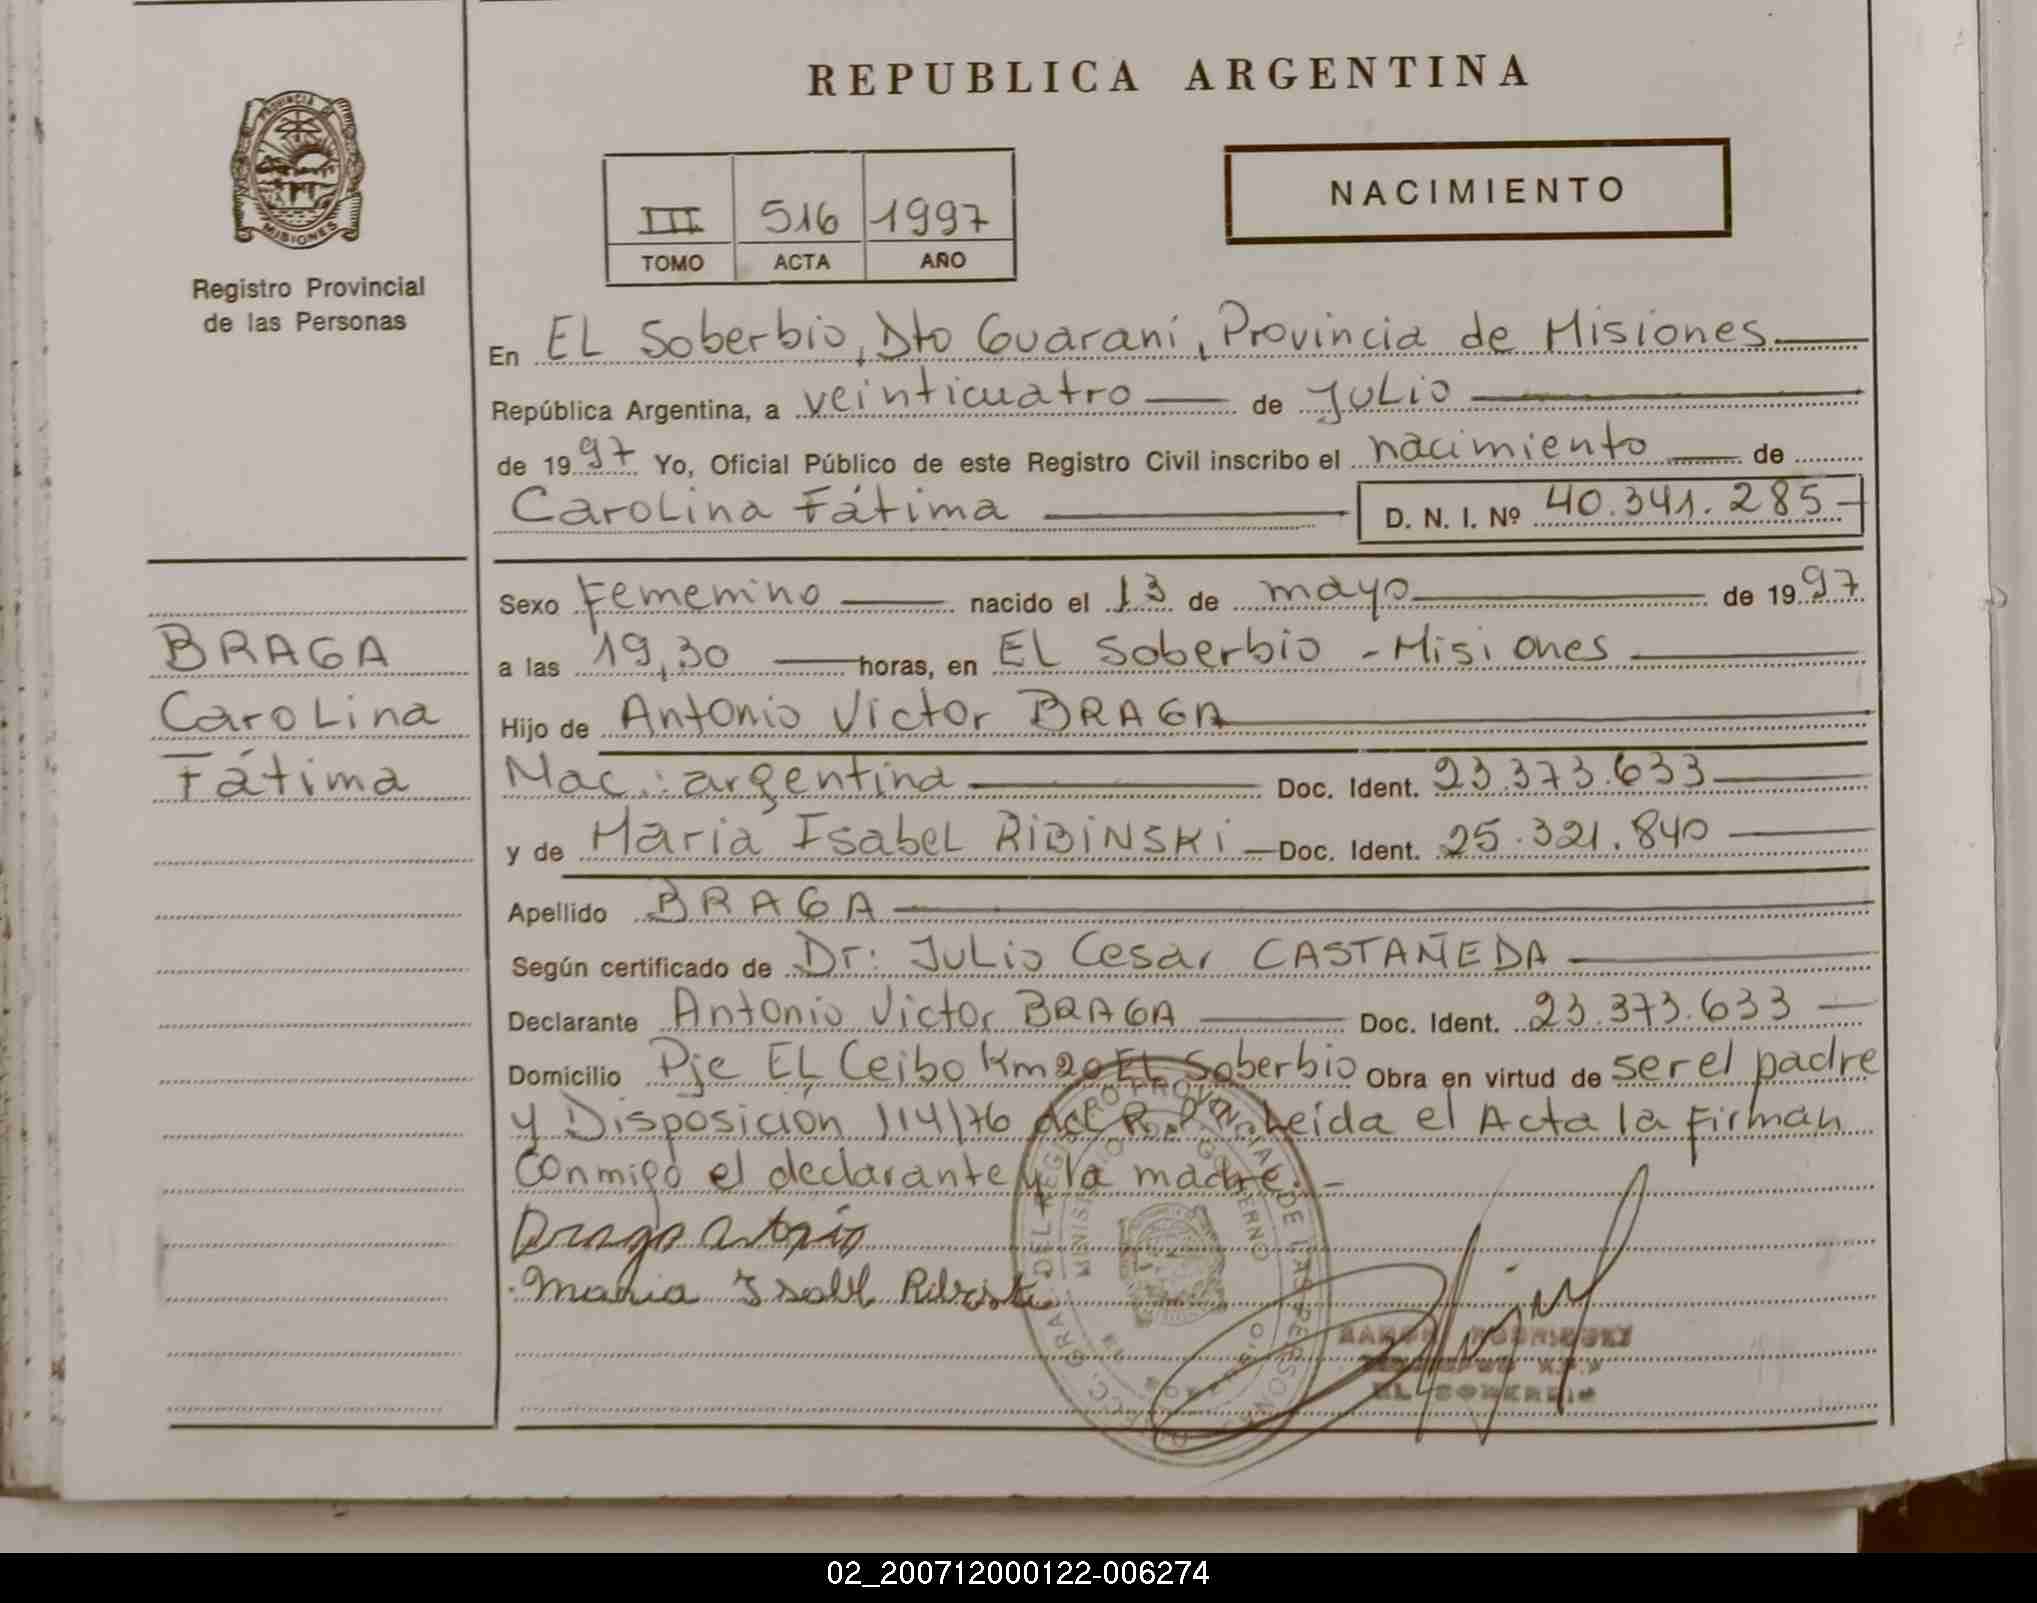 REPUBLICA ARGENTINA
PROVINCIA DE
MISIONES
Registro Provincial
de las Personas
III 516 1997
TOMO ACTA AÑO
NACIMIENTO
En EL Soberbio, Dto Guaraní, Provincia de Misiones
República Argentina, a veinticuatro de Julio
de 1997 Yo, Oficial Público de este Registro Civil inscribo el nacimiento de
Carolina Fátima D. N. I. Nº 40.341.285
Sexo Femenino nacido el 13 de mayo de 1997
a las 19,30 horas, en EL Soberbio - Misiones
Hijo de Antonio Victor BRAGA
Nac.: argentina Doc. Ident. 23.373.633
y de María Isabel RIBINSKI Doc. Ident. 25.321.840
Apellido BRAGA
Según certificado de Dr: Julio Cesar CASTAÑEDA
Declarante Antonio Victor BRAGA Doc. Ident. 23.373.633
Domicilio Pje EL Ceibo Km 20 EL Soberbio Obra en virtud de ser el padre
y Disposición 114/76 del R.P. Leída el Acta la Firman
conmigo el declarante y la madre.-
BRAGA
Carolina
Fátima
Braga Antonio
Maria Isabel
RAMON RODRIGUEZ
EL SOBERBIO
02_200712000122-006274